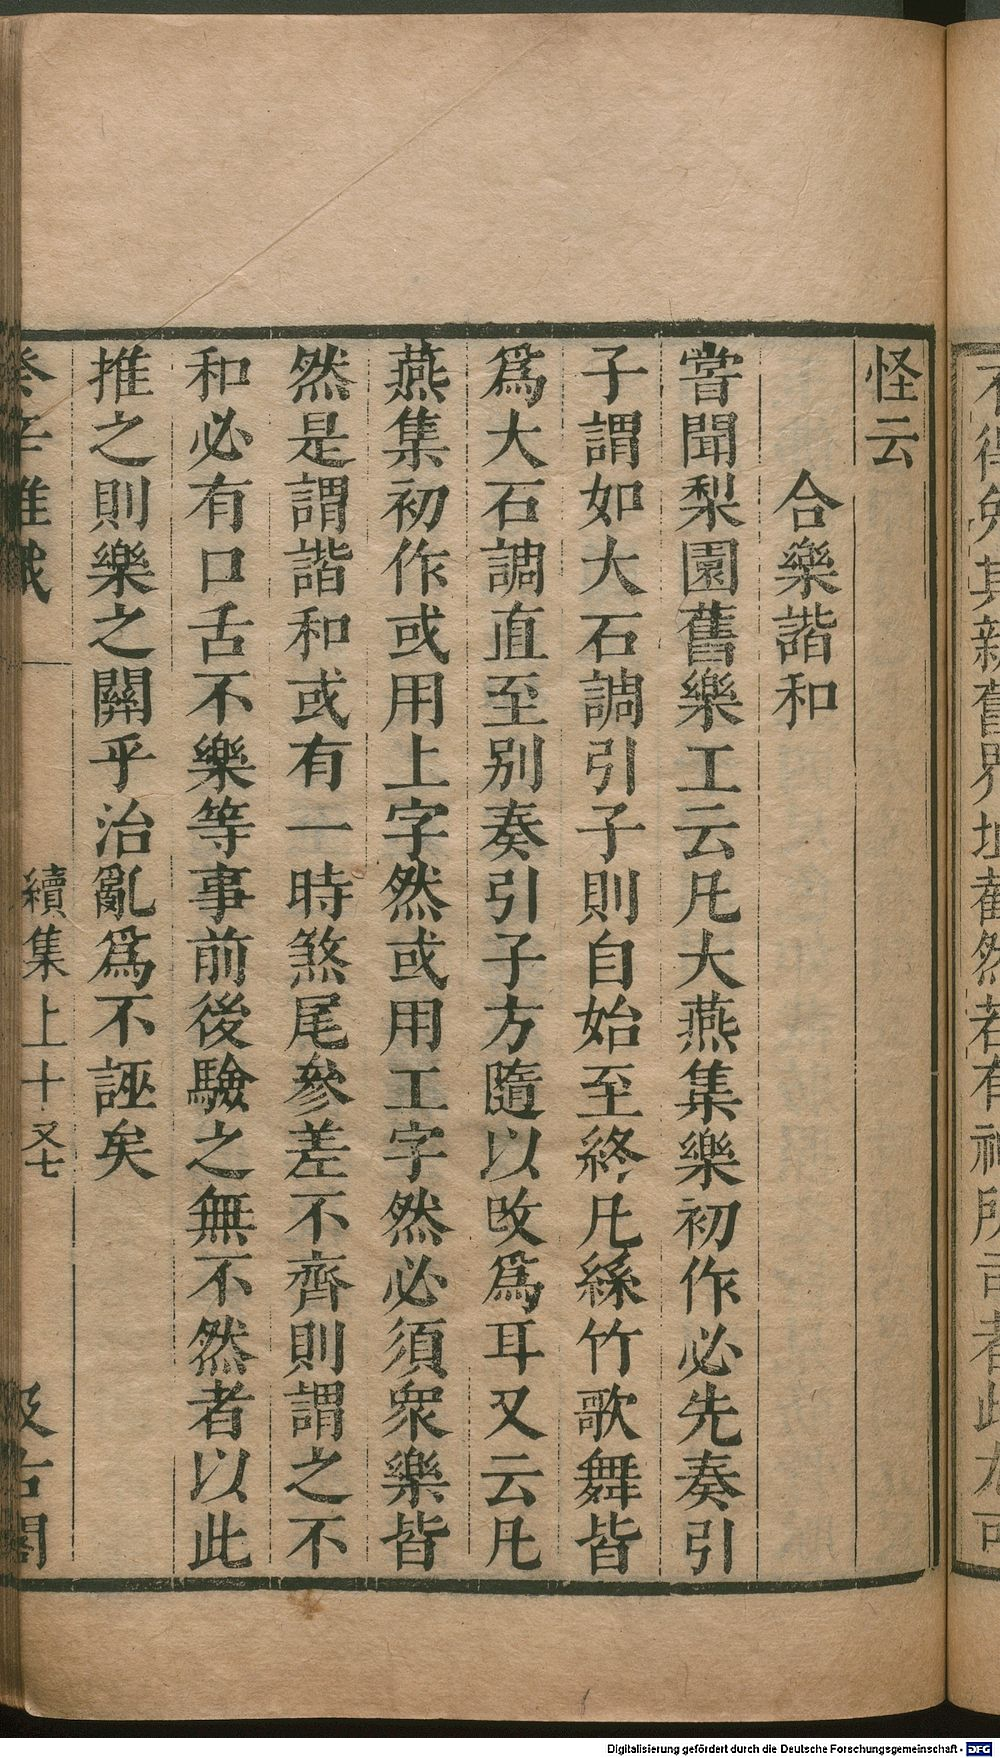 怪云
合樂諧和
嘗聞梨園舊樂工云凡大燕集樂初作必先奏引
子謂如大石調引子則自始至終凡絲竹歌舞皆
爲大石調直至别奏引子方隨以改爲耳又云凡
燕集初作或用上字然或用工字然必須衆樂皆
然是謂諧和或有一時煞尾參差不齊則謂之不
和必有口舌不樂等事前後驗之無不然者以此
推之則樂之關乎治亂爲不誣矣
癸辛雜識
續集上
十又七
汲古閣
Digitalisierung gefördert durch die Deutsche Forschungsgemeinschaft - DFG